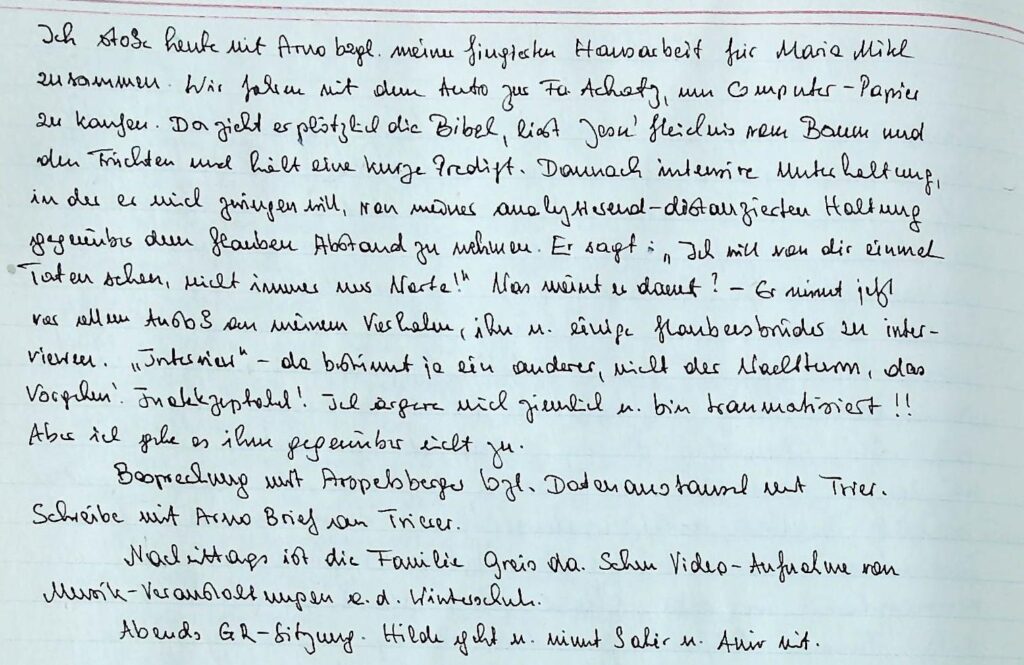 Ich stoße heute mit Arno bzgl. meiner fingierten Hausarbeit für Maria Mikl
zusammen. Wir fahren mit dem Auto zur Fa. Achatz, um Computer-Papier
zu kaufen. Da zieht er plötzlich die Bibel, liest Jesu' Gleichnis vom Baum und
den Früchten und hält eine kurze Predigt. Dannach intensive Unterhaltung,
in der er mich zwingen will, von meiner analysierend-distanzierten Haltung
gegenüber dem Glauben Abstand zu nehmen. Er sagt: „Ich will von dir einmal
Taten sehen, nicht immer nur Worte!" Was meint er damit? – Er nimmt jetzt
vor allem Anstoß an meinem Verhalten, ihn u. einige Glaubensbrüder zu inter-
viewen. „Interview" – da bestimmt ja ein anderer, nicht der Wachtturm, das
Vorgehen! Inakkzeptabel! Ich ärgere mich ziemlich u. bin traumatisiert!!
Aber ich gebe es ihm gegenüber nicht zu.
Besprechung mit bzgl. Datenaustausch mit Trier.
Schreibe mit Arno Brief an Trierer.
Nachmittags ist die Familie Greis da. Sehen Video-Aufnahme von
Musik-Veranstaltungen a.d. Winterschule.
Abends GR-Sitzung. Hilde geht u. nimmt u. Amir mit.